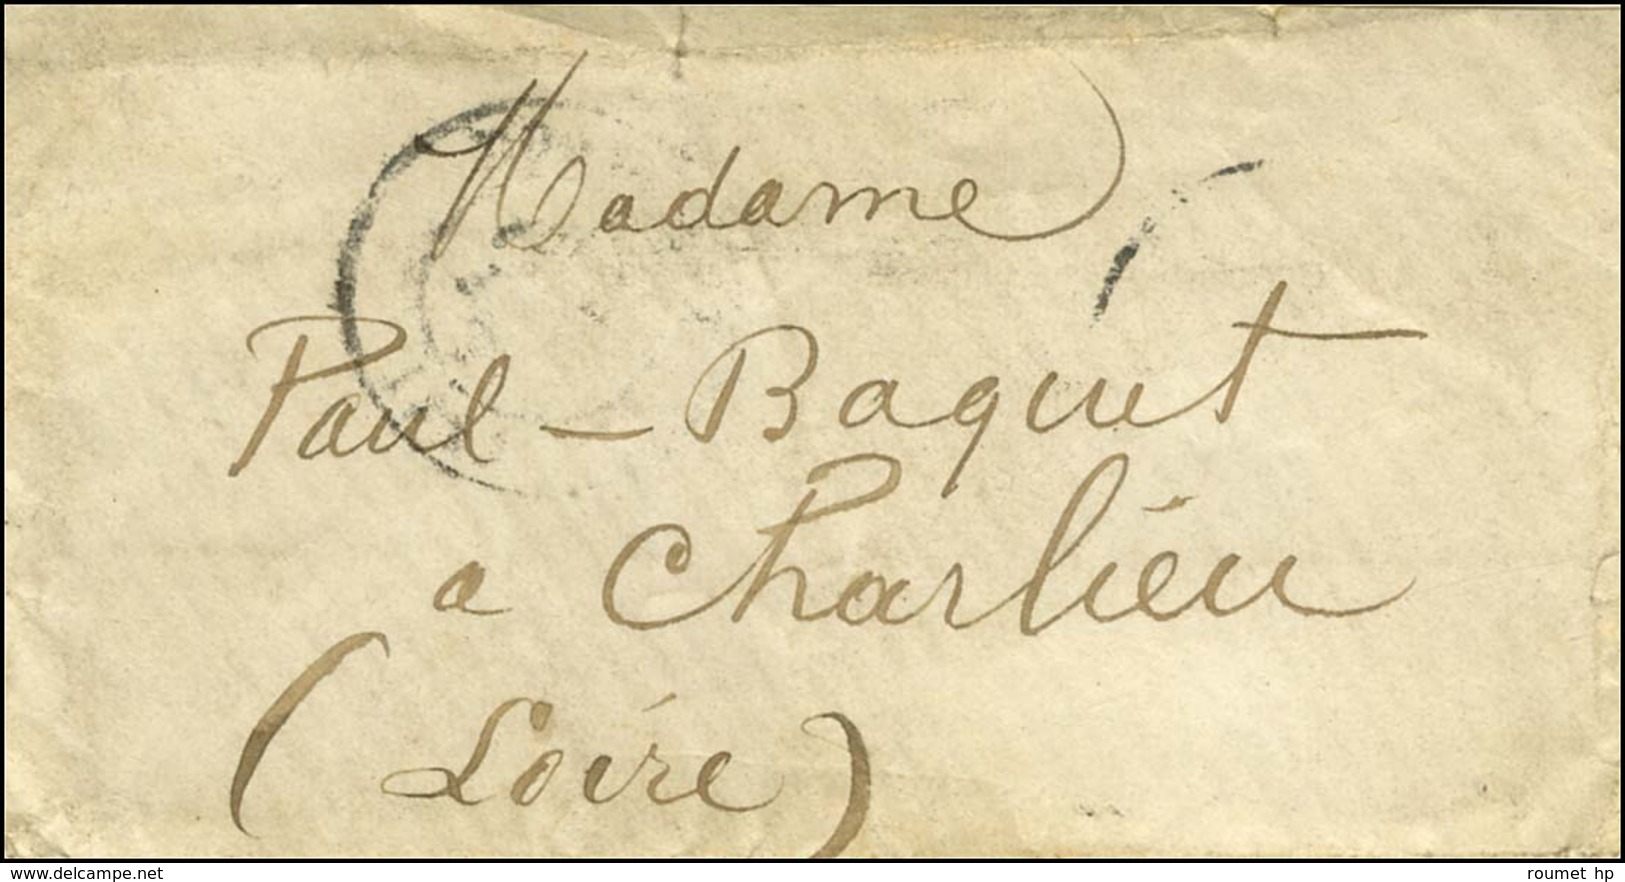 Madame
Paul - Baquet
a Charlieu
(Loire)
www.delcampe.net
roumet hp